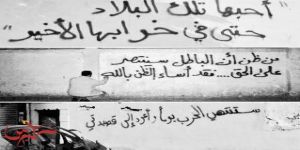 "أحبها تلك البلاد
حتى في خرابها الأخير"
من ظن ان الباطل سينتصر
على الحق....فقد أساء الظن بالله
ستنتهي الحرب يوماً وأعود إلى قصيدتي